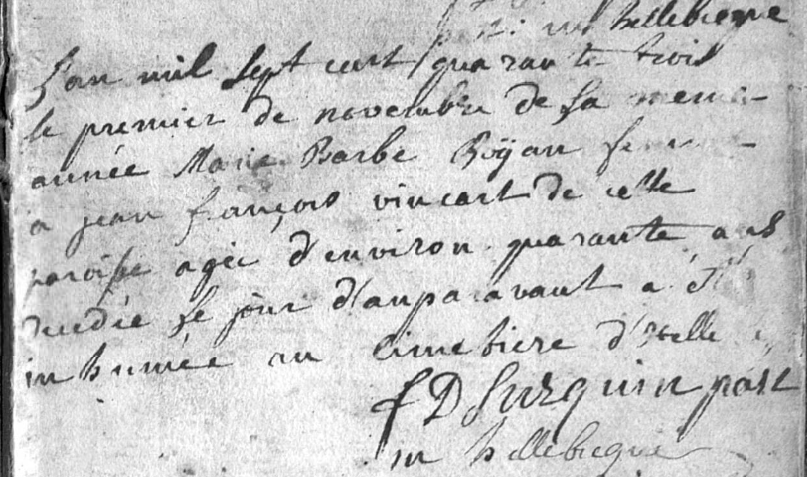 past: in hellebecque
L'an mil sept cent quarante trois
le premier de novembre de la meme
année Marie Barbe Boÿan femme
a jean françois vincart de cette
paroisse agée d'environ quarante ans
decedée le jour d'auparavant a été
inhumée au Cimetiere d'helle
f D Surquin past
in hellebecque